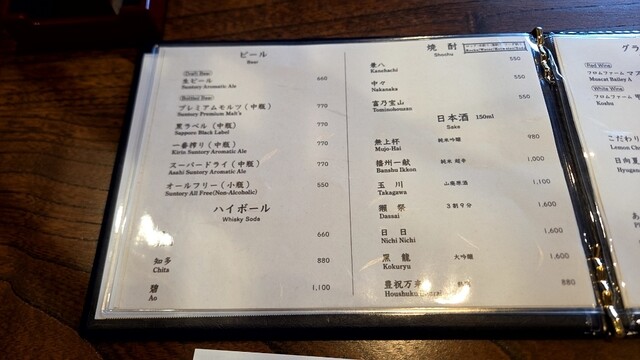 ビール
Beer
Draft Beer
生ビール 660
Suntory Aromatic Ale
Bottled Beer
プレミアムモルツ（中瓶） 770
Suntory Premium Malt's
黒ラベル（中瓶） 770
Sapporo Black Label
一番搾り（中瓶） 770
Kirin Suntory Aromatic Ale
スーパードライ（中瓶） 770
Asahi Suntory Aromatic Ale
オールフリー（小瓶） 550
Suntory All Free(Non-Alcoholic)
ハイボール
Whisky Soda
660
知多 880
Chita
碧 1,100
Ao
焼酎
Shochu
兼八 550
Kanehachi
中々 550
Nakanaka
富乃宝山 550
Tominohouzan
日本酒 150ml
Sake
無上杯 純米吟醸 980
Mujo-Hai
播州一献 純米 超辛 1,000
Banshu Ikkon
玉川 山廃原酒 1,100
Takagawa
獺祭 3割9分 1,600
Dassai
日日 1,600
Nichi Nichi
黒龍 大吟醸 1,600
Kokuryu
豊祝万 880
Houshuku
グラ
Red Wine
フロムファーム マ
Muscat Bailey A
White Wine
フロムファーム
Koshu
こだわり
Lemon
日向夏
Hyuga